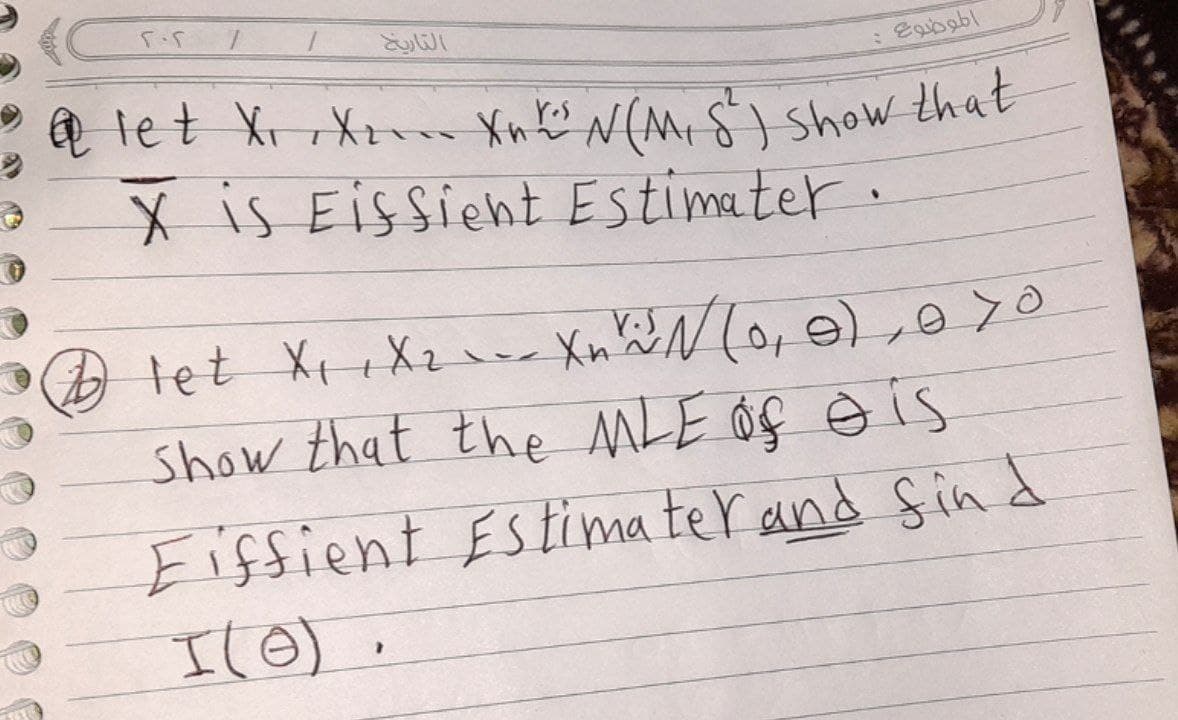 الموضوع : التاريخ / / ٢٠٢
let X₁, X₂ ... Xn r.s ~ N(M, δ²) show that
X̅ is Eiffient Estimater.
(b) let X₁, X₂ --- Xn r.s ~ N(0, θ), θ > 0
show that the MLE of θ is
Eiffient Estimater and find
I(θ).